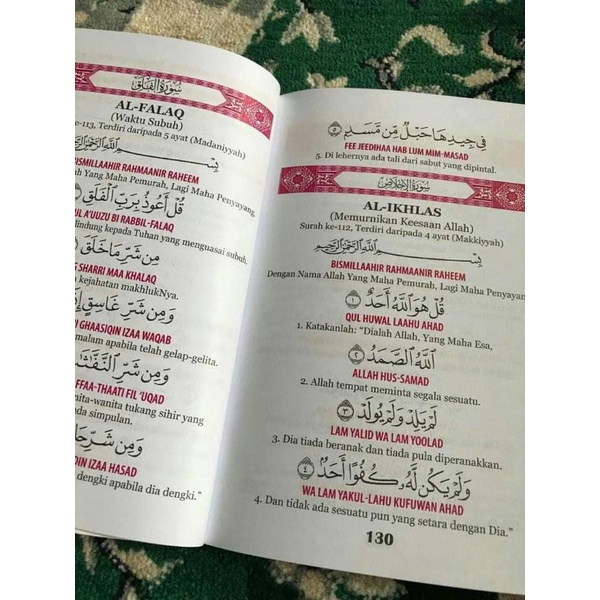 فِي جِيدِهَا حَبْلٌ مِّن مَّسَدٍ ٥
FEE JEEDIHAA HAB LUM MIM-MASAD
5. Di lehernya ada tali dari sabut yang dipintal.
سُورَةُ الإِخْلَاصِ
AL-IKHLAS
(Memurnikan Keesaan Allah)
Surah ke-112, Terdiri daripada 4 ayat (Makkiyyah)
بِسْمِ اللَّهِ الرَّحْمَٰنِ الرَّحِيمِ
BISMILLAAHIR RAHMAANIR RAHEEM
Dengan Nama Allah Yang Maha Pemurah, Lagi Maha Penyayang,
قُلْ هُوَ ٱللَّهُ أَحَدٌ ١
QUL HUWAL LAAHU AHAD
1. Katakanlah: “Dialah Allah, Yang Maha Esa,
ٱللَّهُ ٱلصَّمَدُ ٢
ALLAH HUS-SAMAD
2. Allah tempat meminta segala sesuatu.
لَمْ يَلِدْ وَلَمْ يُولَدْ ٣
LAM YALID WA LAM YOOLAD
3. Dia tiada beranak dan tiada pula diperanakkan.
وَلَمْ يَكُن لَّهُۥ كُفُوًا أَحَدٌۢ ٤
WA LAM YAKUL-LAHU KUFUWAN AHAD
4. Dan tidak ada sesuatu pun yang setara dengan Dia.”
130
سُورَةُ الْفَلَقِ
AL-FALAQ
(Waktu Subuh)
ke-113, Terdiri daripada 5 ayat (Madaniyyah)
بِسْمِ اللَّهِ الرَّحْمَٰنِ الرَّحِيمِ
BISMILLAAHIR RAHMAANIR RAHEEM
Allah Yang Maha Pemurah, Lagi Maha Penyayang,
قُلْ أَعُوذُ بِرَبِّ ٱلْفَلَقِ
A'UUZU BI RABBIL-FALAQ
kepada Tuhan yang menguasai subuh.
مِن شَرِّ مَا خَلَقَ
SHARRI MAA KHALAQ
kejahatan makhlukNya.
وَمِن شَرِّ غَاسِقٍ
GHAASIQIN IZAA WAQAB
malam apabila telah gelap-gelita.
وَمِن شَرِّ ٱلنَّفَّٰثَٰتِ
FFAA-THAATI FIL 'UQAD
wanita tukang sihir yang
simpulan.
وَمِن شَرِّ
IZAA HASAD
dengki apabila dia dengki.”